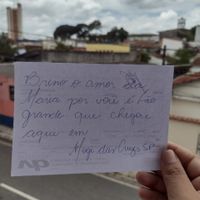 Bruno o amor da
Maria por você é tão
grande que chegou
aqui em
Mogi das Cruzes SP